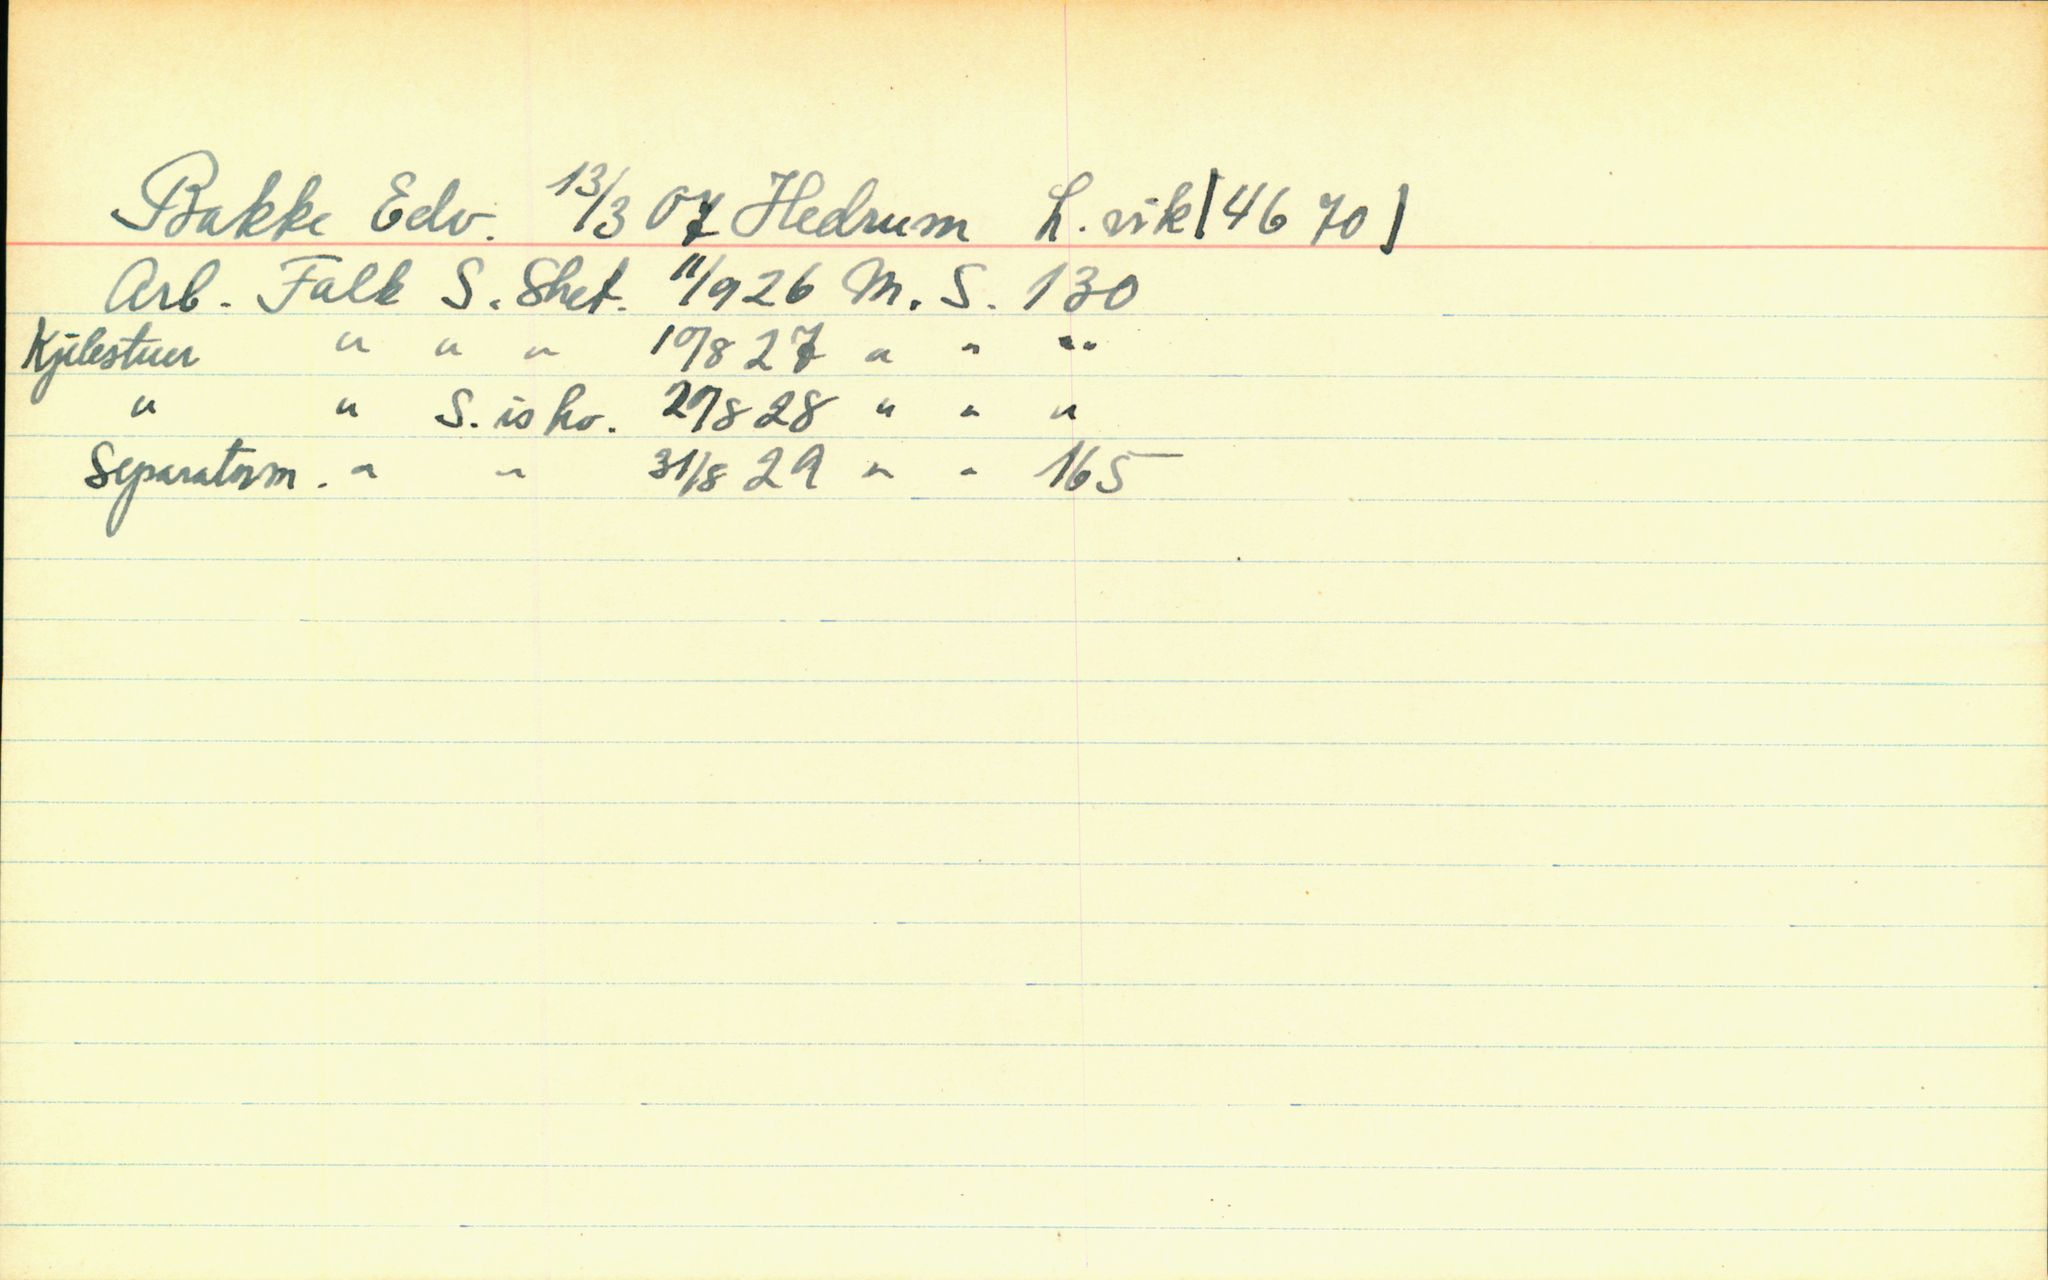 Bakke Edv. 13/3 07 Hedrum L.vik [4670]
Arb. Falk S. Shet. 11/9 26 M. S. 130
Kjelestuer " " " 10/8 27 " " "
" " S. isho. 27/8 28 " " "
Separatorm. " " 31/8 29 " " 165